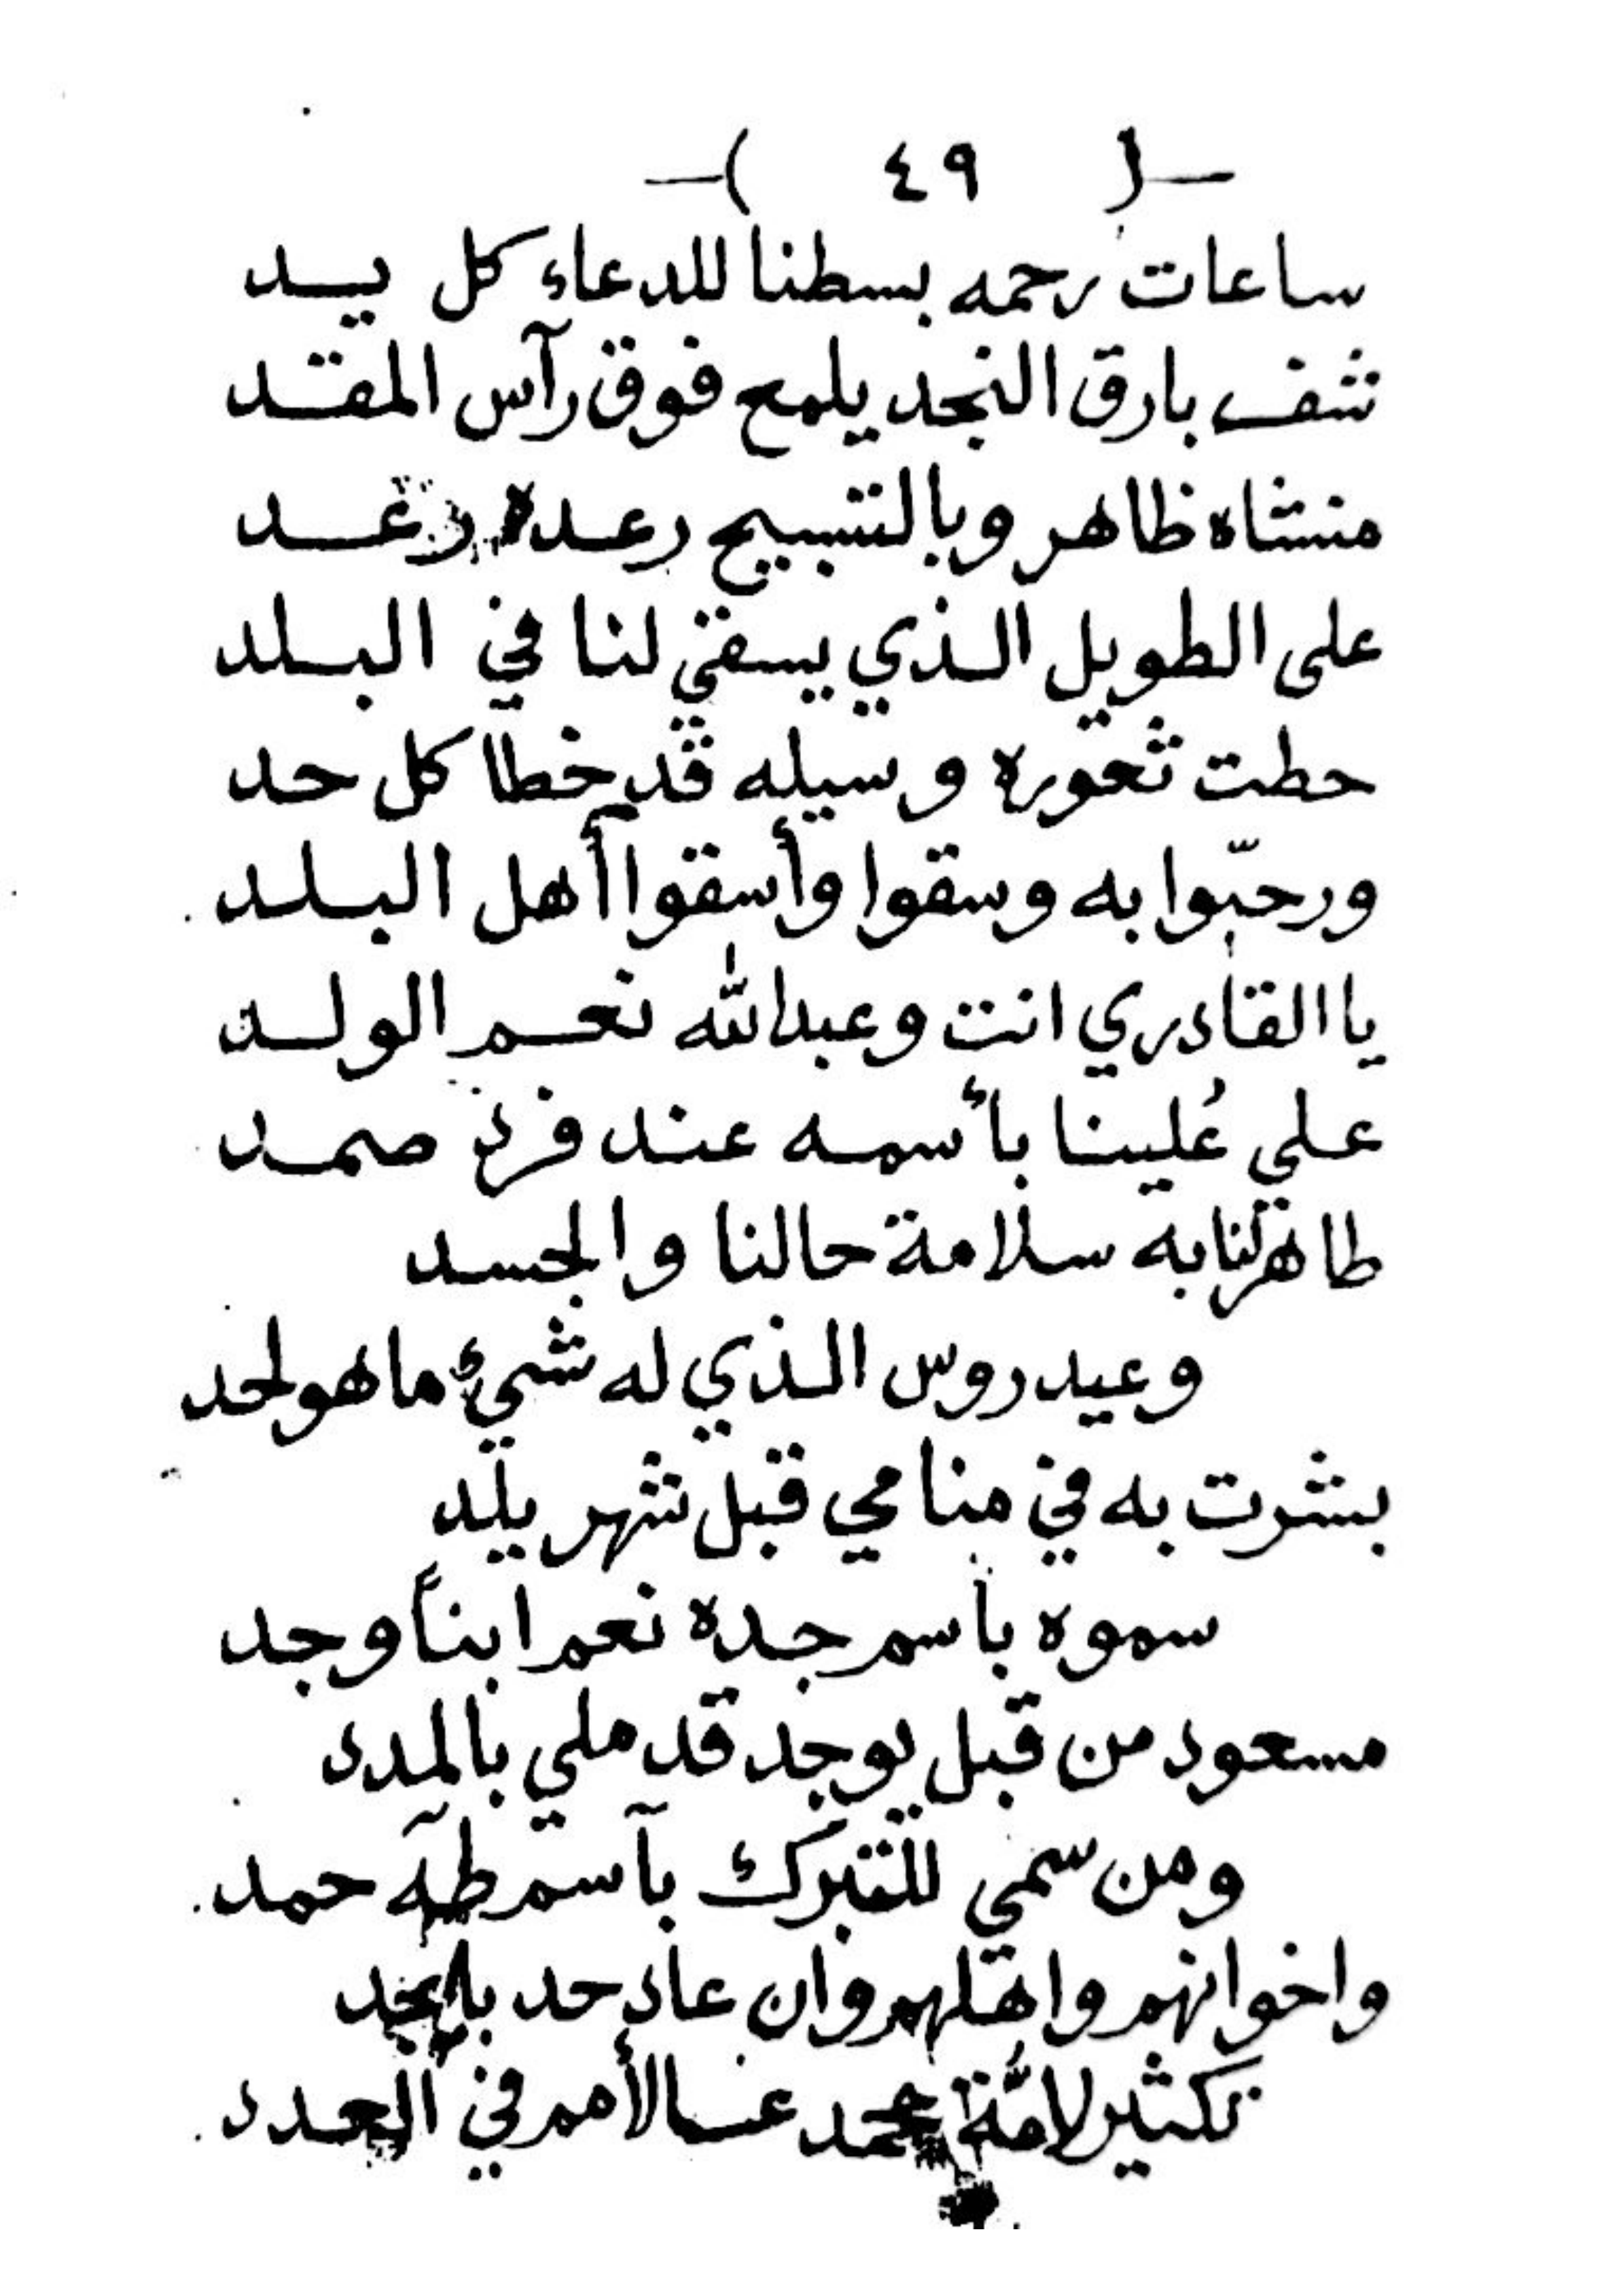 -( ٤٩ )-
ساعات رحمه بسطنا للدعاء كل يد
شف بارق النجد يلمع فوق رآس المقد
منشاه ظاهر وبالتسبيح رعده رعد
على الطويل الذي يسقي لنا في البلد
حطت ثعوره وسيله قد خطا كل حد
ورحبّوا به وسقوا وأسقوا أهل البلد
يا القادري انت وعبدالله نعم الولد
علي عُلينا بأسمه عند فرد صمد
طاهر لنا به سلامة حالنا والجسد
وعيدروس الذي له شيء ما هو لحد
بشرت به في منامي قبل شهر يلد
سموه باسم جده نعم ابناً وجد
مسعود من قبل يوجد قد ملي بالمدد
ومن سمي للتبرك بآسم طه حمد
واخوانهم واهلهم وان عاد حد
تكثير لامُّة محمد عا الأمم في العدد